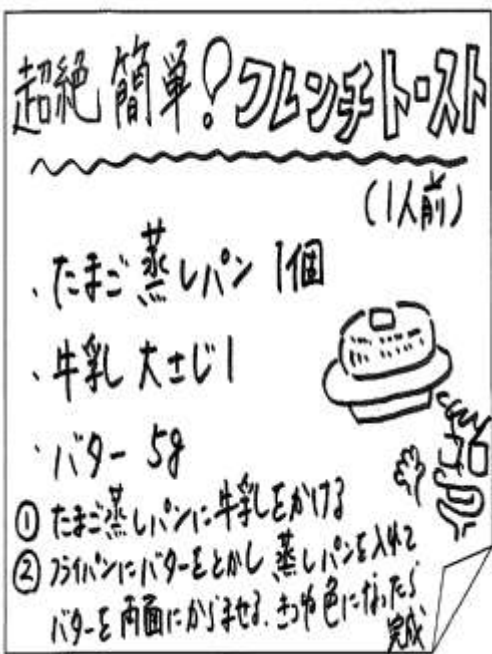 超絶簡単!フレンチトースト
(1人前)
・たまご蒸しパン 1個
・牛乳 大さじ1
・バター 5g
① たまご蒸しパンに牛乳をかける
② フライパンにバターをとかし蒸しパンを入れて
バターを両面にからませる、きつね色になったら
完成